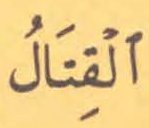 ٱلْقِتَالُ